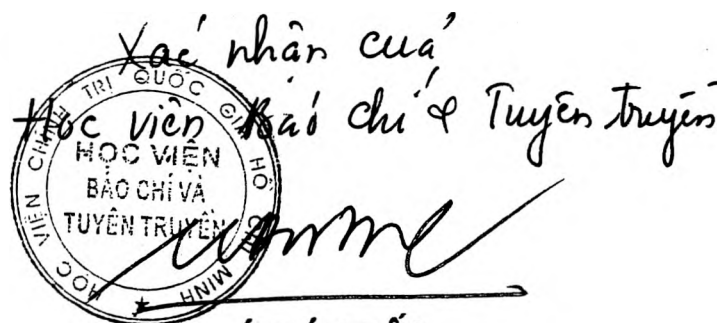 Xác nhận của
Học viện Báo chí & Tuyên truyền
HỌC VIỆN CHÍNH TRỊ QUỐC GIA HỒ CHÍ MINH
HỌC VIỆN
BÁO CHÍ VÀ
TUYÊN TRUYỀN